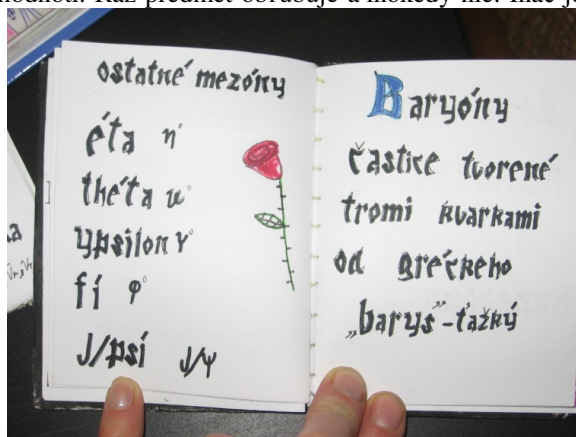 ostatné mezóny
éta η°
théta
ypsilon ϒ°
fí φ°
J/psí J/ψ
Baryóny
častice tvorené
tromi kvarkami
od gréckeho
„barys”-ťažký